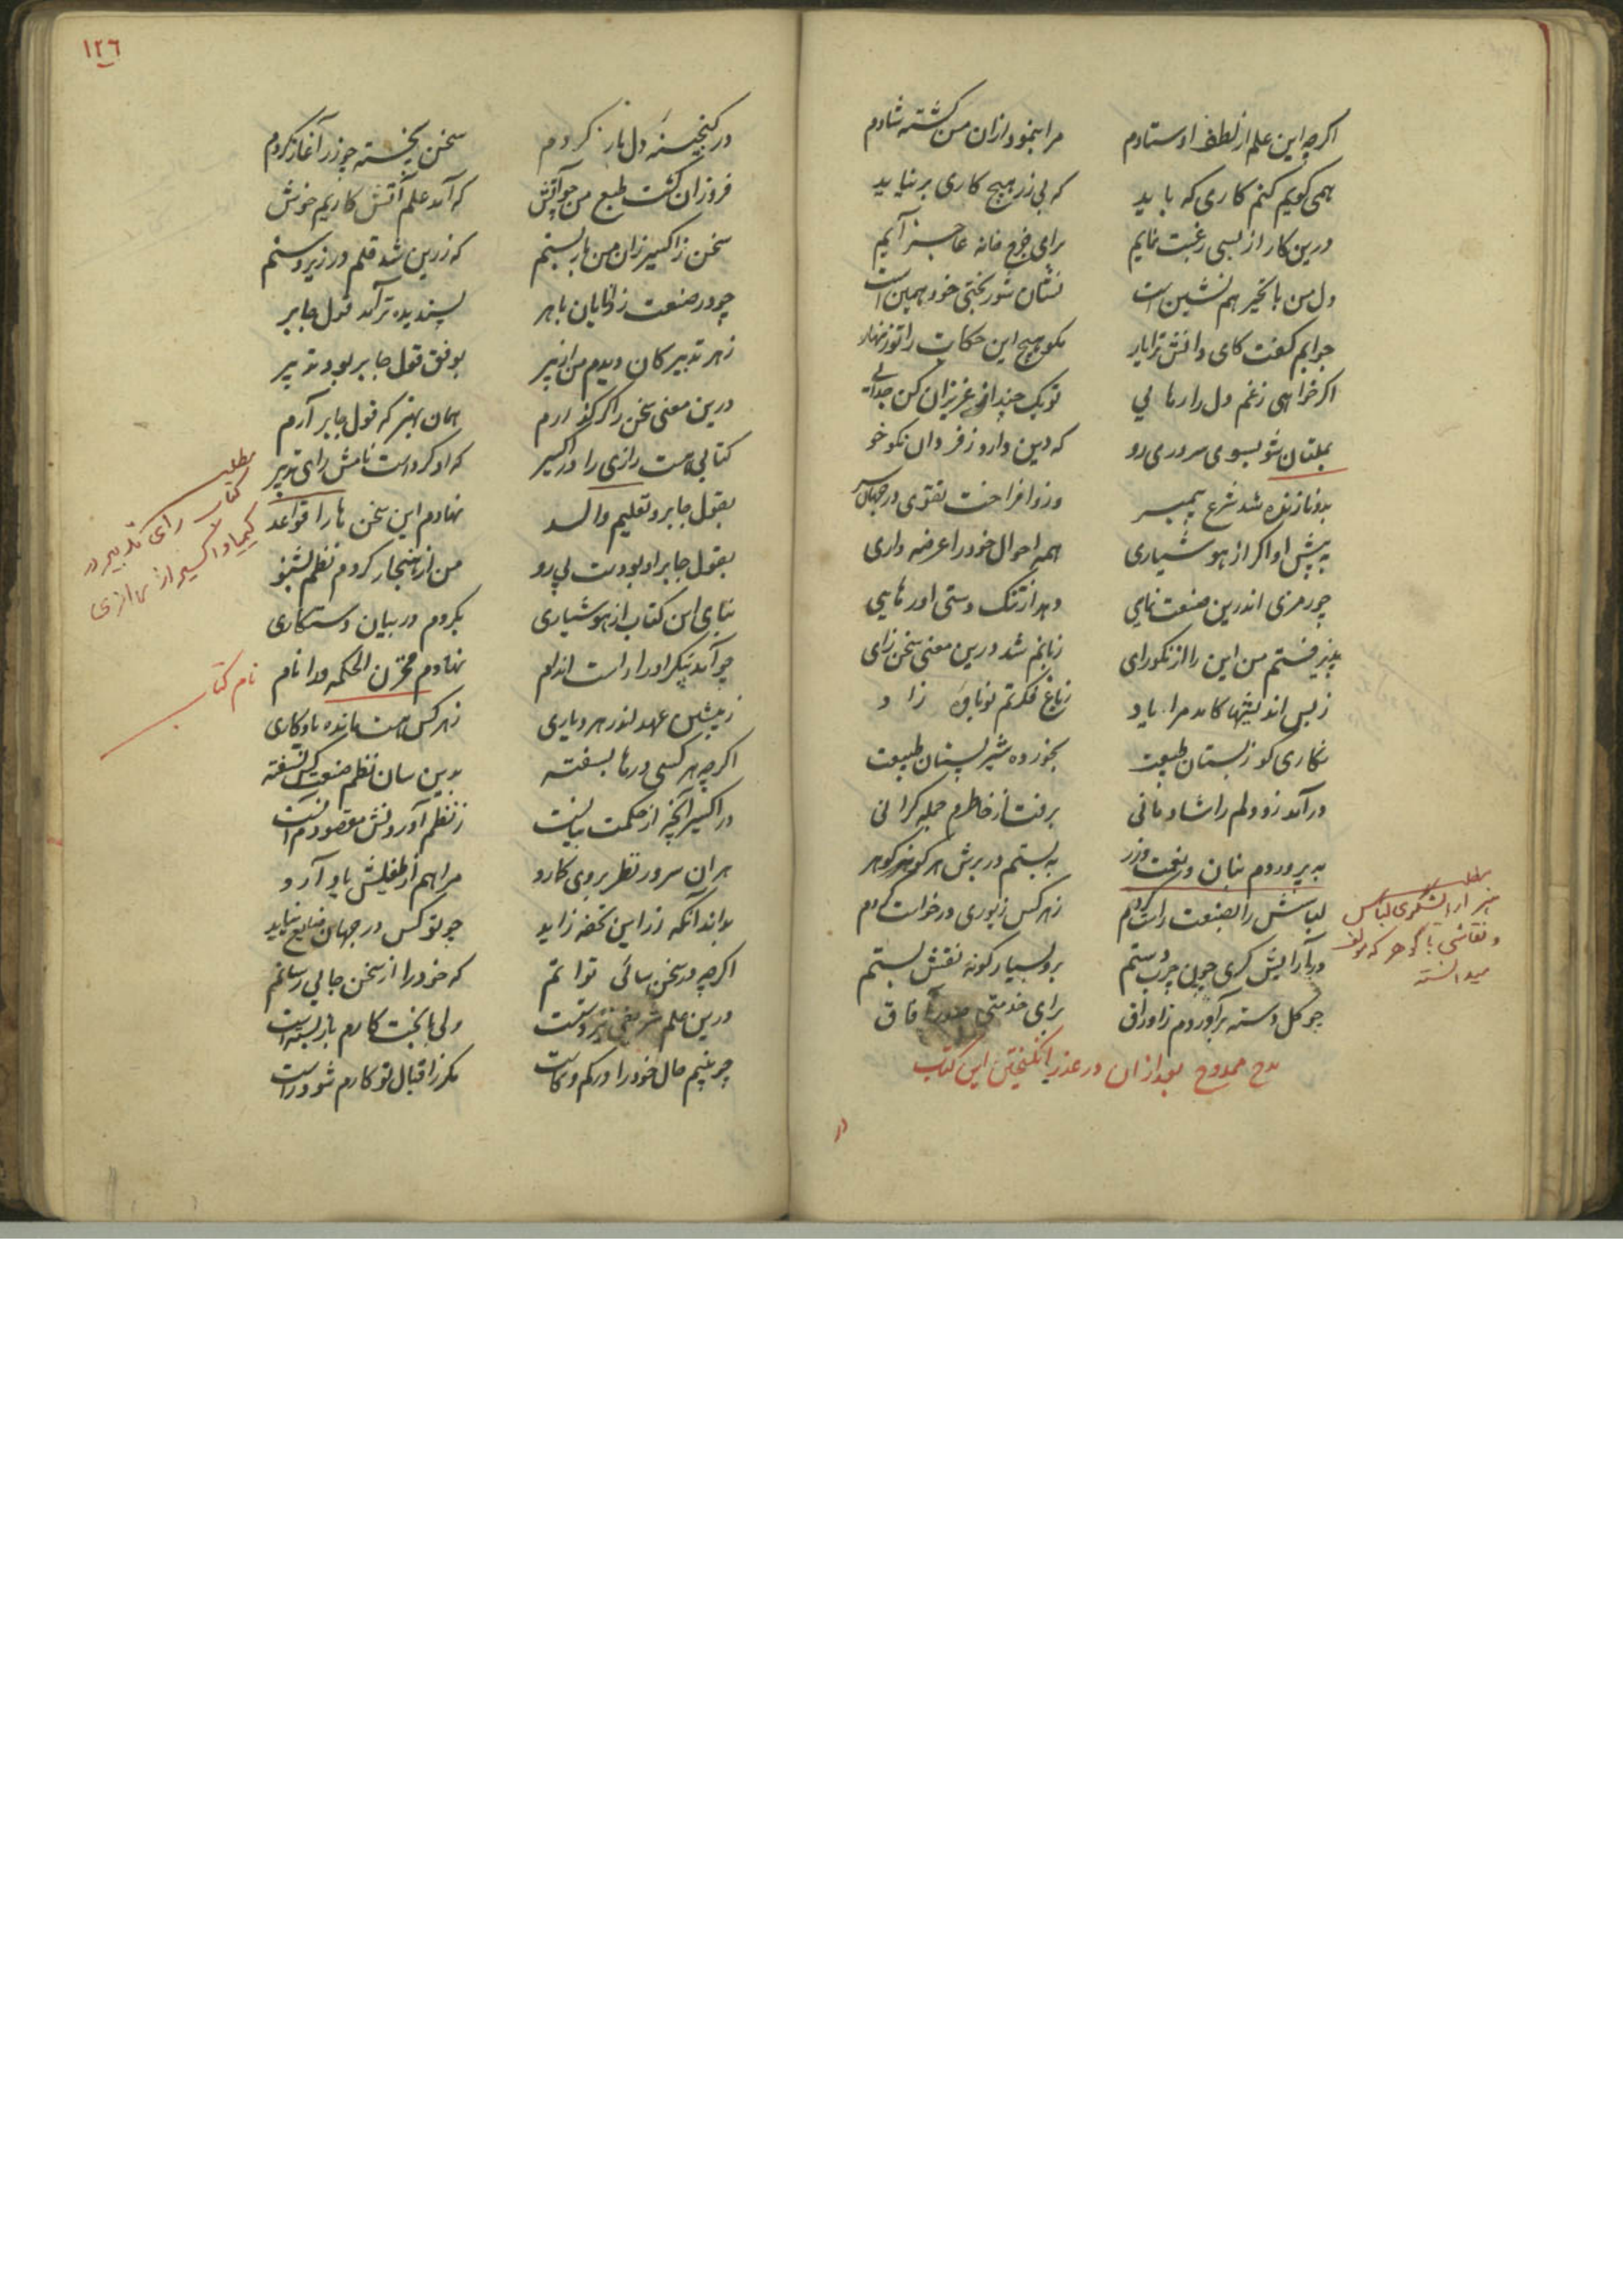 اکرچه این علم از لطف اوستادم مرا بنمود ازان من کشته شادم
همی کویم کنم کاری که باید که بی زر هیچ کاری برنیاید
درین کار از بسی رغبت نمایم برای خرج خانه عاجز آیم
دل من با تحیر هم نشین است نشان شوربختی خود همین است
جوابم کفت کای دانش ترا یار مکو هیچ این حکایت را تو زنهار
اکر خواهی ز غم دل را رهایی تو یک چند از عزیزان کن جدایی
بملتان شو بسوی سروری رو که دین دارو زفر دان نکوخو
بدو نازنده شد شرع پیمبر وزو افراخت تقوی در جهان سر
به پیش او اکر از هوشیاری همه احوال خود را عرضه داری
چو رمزی اندرین صنعت نمایی دهد از تنک دستی او رهایی
پذیرفتم من این را از نکورای زبانم شد درین معنی سخن زای
ز بس اندیشها کامد مرا یاد ز باغ فکرتم نوباوه زاد
نکاری کو ز بستان طبیعت بخورده شیر پستان طبیعت
درآمد زو دلم را شادمانی برفت از خاطرم جمله کرانی
به پروردم بنان و نعمت و زر به بستم در برش هر کونه کوهر
لباسش را بصنعت راست کردم ز هر کس زیوری درخواست کردم
در آرایش کری چون چرب دستم برو بسیار کونه نقش بستم
چو کل دسته برآوردم ز اوراق برای خدمتی صدر آفاق
مدح ممدوح بعد از ان در عذر انکیختن این کتاب
مطلب
هنر آرایشکری لباس
و نقاشی با کوهر که مولف
میدانسته
در
١٢٦
در کنجینه دل باز کردم سخن پخته چو زر آغاز کردم
فروزان کشت طبع من چو آتش که آمد علم آتش کاریم خوش
سخن ز اکسیر زان من باربستم که زرین شد قلم در زیر دستم
چو در صنعت ز دانایان باهر پسندیده‌تر آمد قول جابر
ز هر تدبیر کان دیدم من از پیر بوفق قول جابر بود تدبیر
درین معنی سخن را کر کذارم همان بهتر که قول جابر آرم
کتابی هست رازی را در اکسیر که او کردست نامش رای تدبیر
بقول جابر و تعلیم والد نهادم این سخن ها را قواعد
بقول جابر او بودست پی رو من از هنجار کردم نظم بشنو
بنای این کتاب از هوشیاری بکردم در بیان دستکاری
چو آمد پیکر او راست اندام نهادم مخزن الحکمه ورا نام
ز پیشین عهد اندر هر دیاری ز هر کس هست مانده یادکاری
اکرچه هر کسی درها بسفته بدین سان نظم صنعت کس نکفته
در اکسیر آنچه از حکمت بیانست ز نظم آوردنش مقصودم آنست
هر ان سرور نظر بروی کمارد مرا هم از طفیلش یاد آرد
بداند آنکه زر این تحفه زاید چو تو کس در جهان ضایع نباید
اکرچه در سخن سائی توانم که خود را از سخن جایی رسانم
درین علم شریفم نیز دستست ولی با بخت کارم باز بستست
چو بینم حال خود را در کم و کاست مکر ز اقبال تو کارم شود راست
مطلب
کتاب رای تدبیر در
کیمیا و اکسیر از رازی
نام کتاب